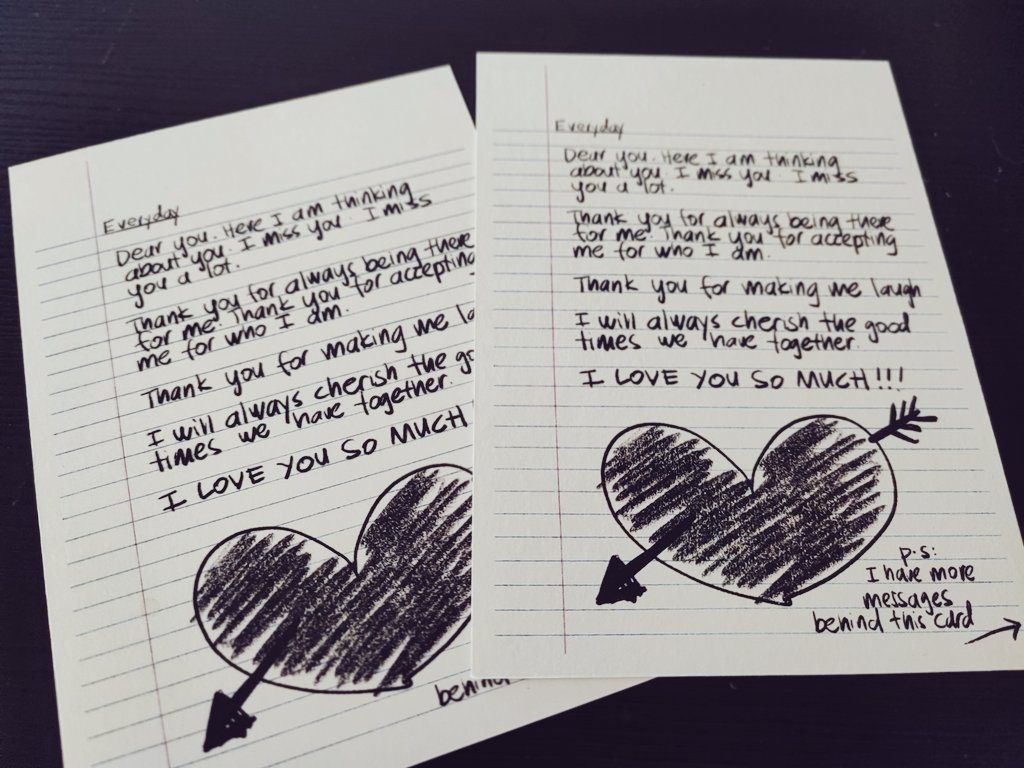 Everyday
Dear you. Here I am thinking
about you. I miss you. I miss
you a lot.
Thank you for always being there
for me. Thank you for accepting
me for who I am.
Thank you for making me la
I will always cherish the go
times we have together.
I LOVE YOU SO MUCH
behind
Everyday
Dear you. Here I am thinking
about you. I miss you. I miss
you a lot.
Thank you for always being there
for me. Thank you for accepting
me for who I am.
Thank you for making me laugh
I will always cherish the good
times we have together.
I LOVE YOU SO MUCH!!!
p.s:
I have more
messages
behind this card